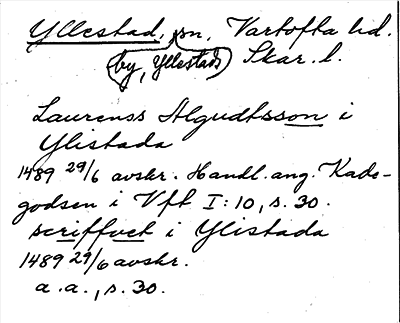 Yllestad, sn, Vartofta hd.
(by, Yllestad) Skar. l.
Laurenss Algudtsson i
Ylistada
1489 29/6 avskr. Handl. ang. Kads-
godsen i Vft I:10, s. 30.
scriffvet i Ylistada
1489 29/6 avskr.
a. a., s. 30.